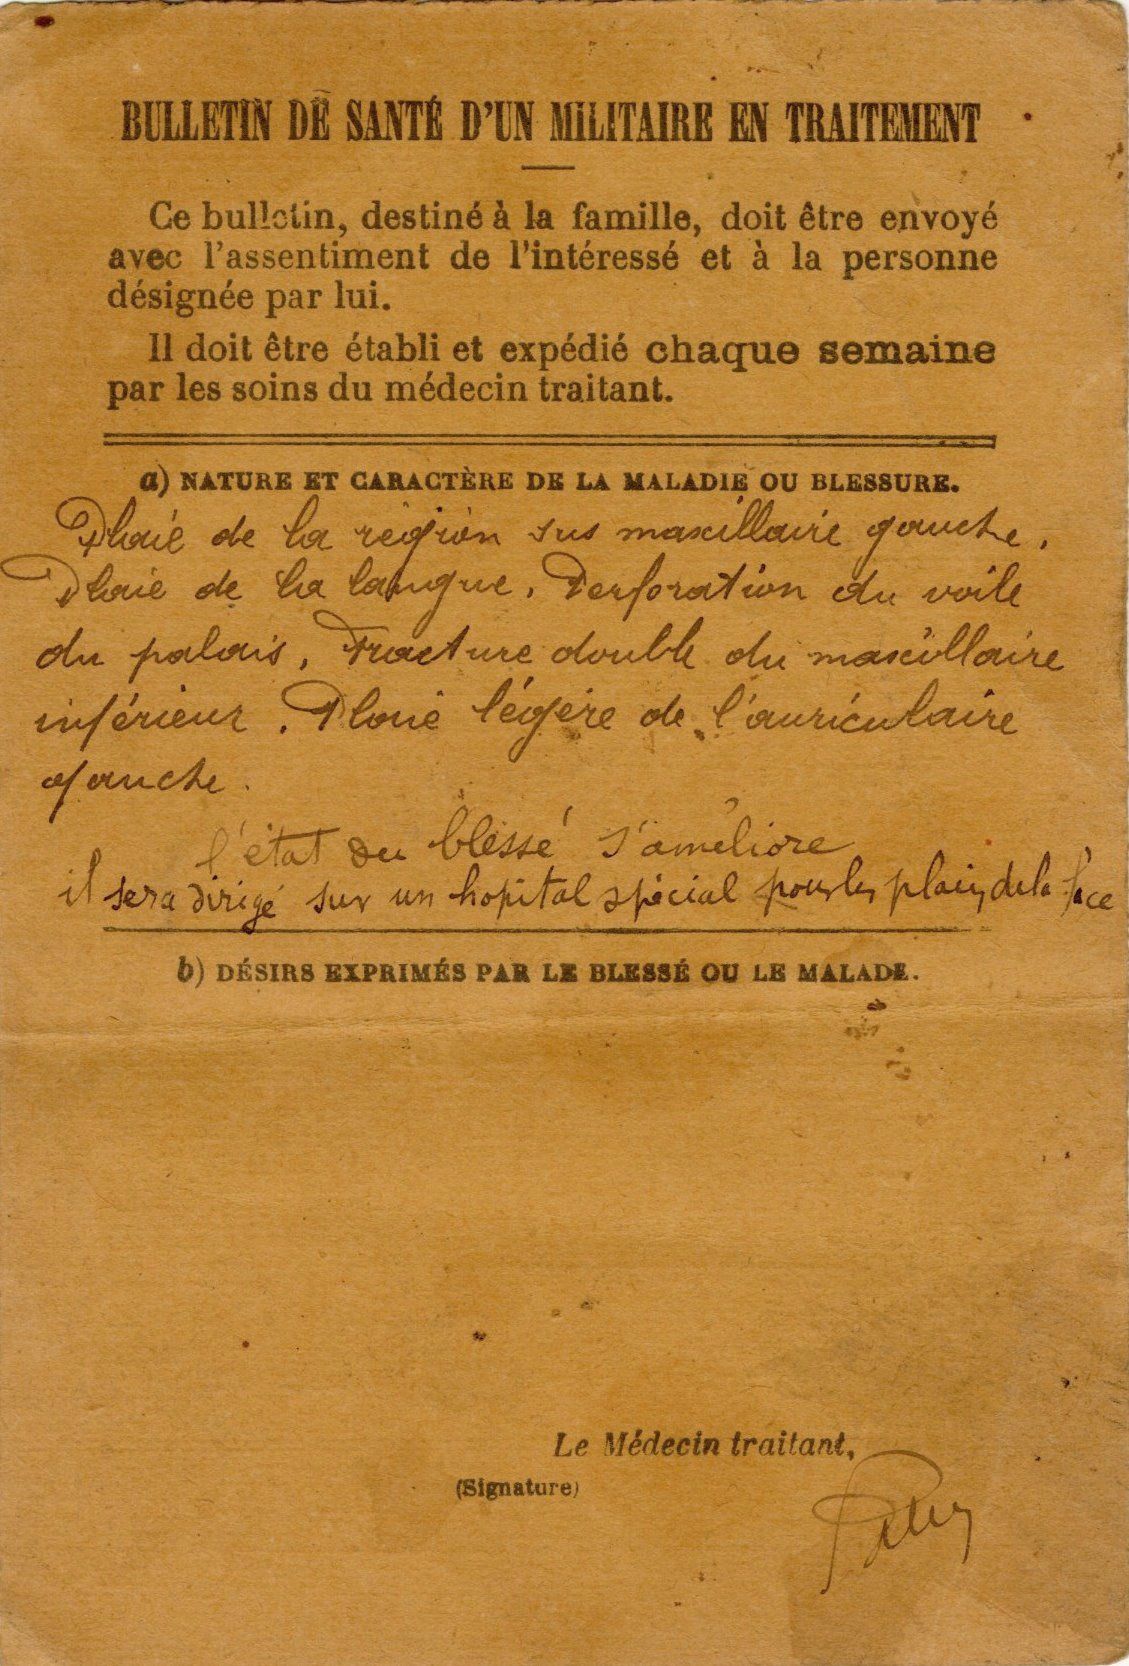 BULLETIN DE SANTÉ D'UN MILITAIRE EN TRAITEMENT
Ce bulletin, destiné à la famille, doit être envoyé
avec l'assentiment de l'intéressé et à la personne
désignée par lui.
Il doit être établi et expédié chaque semaine
par les soins du médecin traitant.
a) NATURE ET CARACTÈRE DE LA MALADIE OU BLESSURE.
Plaie de la région sus maxillaire gauche.
Plaie de la langue. Perforation du voile
du palais, Fracture double du maxillaire
inférieur. Plaie légère de l'auriculaire
gauche.
l'état du blessé s'améliore
il sera dirigé sur un hopital spécial pour les plaies de la face
b) DÉSIRS EXPRIMÉS PAR LE BLESSÉ OU LE MALADE.
Le Médecin traitant,
(Signature)